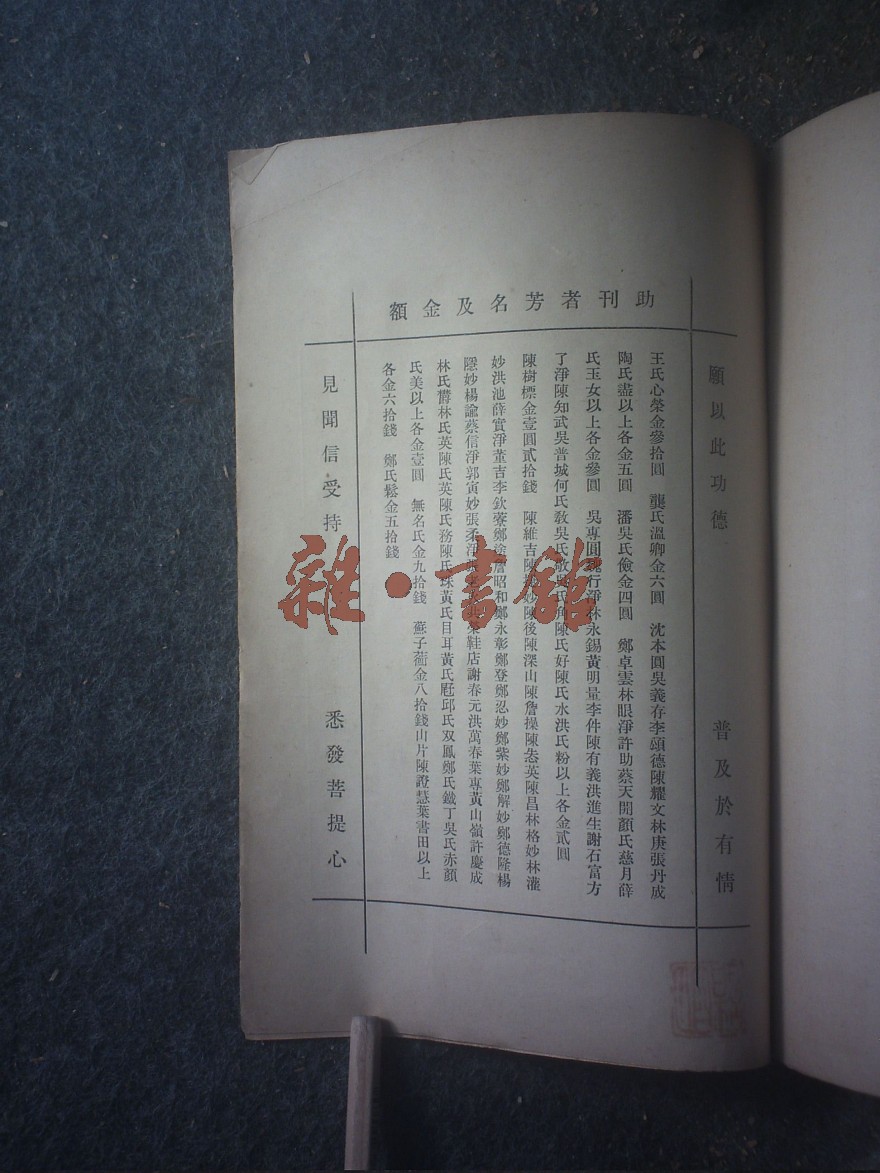 助刊者芳名及金額
願以此功德　普及於有情
王氏心榮金參拾圓　龔氏溫卿金六圓　沈本圓吳義存李頭德陳耀文林庚張丹成
陶氏盡以上各金五圓　潘吳氏儉金四圓　鄭卓雲林眼淨許助蔡天開顏氏慈月薛
氏玉女以上各金參圓　吳專圓 行淨林永錫黃明量李件陳有義洪進生謝石富方
了淨陳知武吳普城何氏敎吳氏 吳氏角陳氏好陳氏水洪氏粉以上各金貳圓
陳樹標金壹圓貳拾錢　陳維吉陳 妙陳後陳深山陳詹操陳 英陳昌林格妙林灌
妙洪池薛實淨董吉李欽 鄭塗詹昭和鄭永彰鄭登鄭忍妙鄭紫妙鄭解妙鄭德隆楊
隱妙楊論蔡信淨郭寅妙張柔淨 鞋店謝春元洪萬春葉專黃山嶺許慶成
林氏 林氏英陳氏英陳氏務陳氏珠黃氏目耳黃氏 邱氏双鳳鄭氏鐵丁吳氏赤顏
氏美以上各金壹圓　無名氏金九拾錢　蘇子 金八拾錢山片陳證慧葉書田以上
各金六拾錢　鄭氏鬆金五拾錢
見聞信受持　悉發菩提心
雜·書館